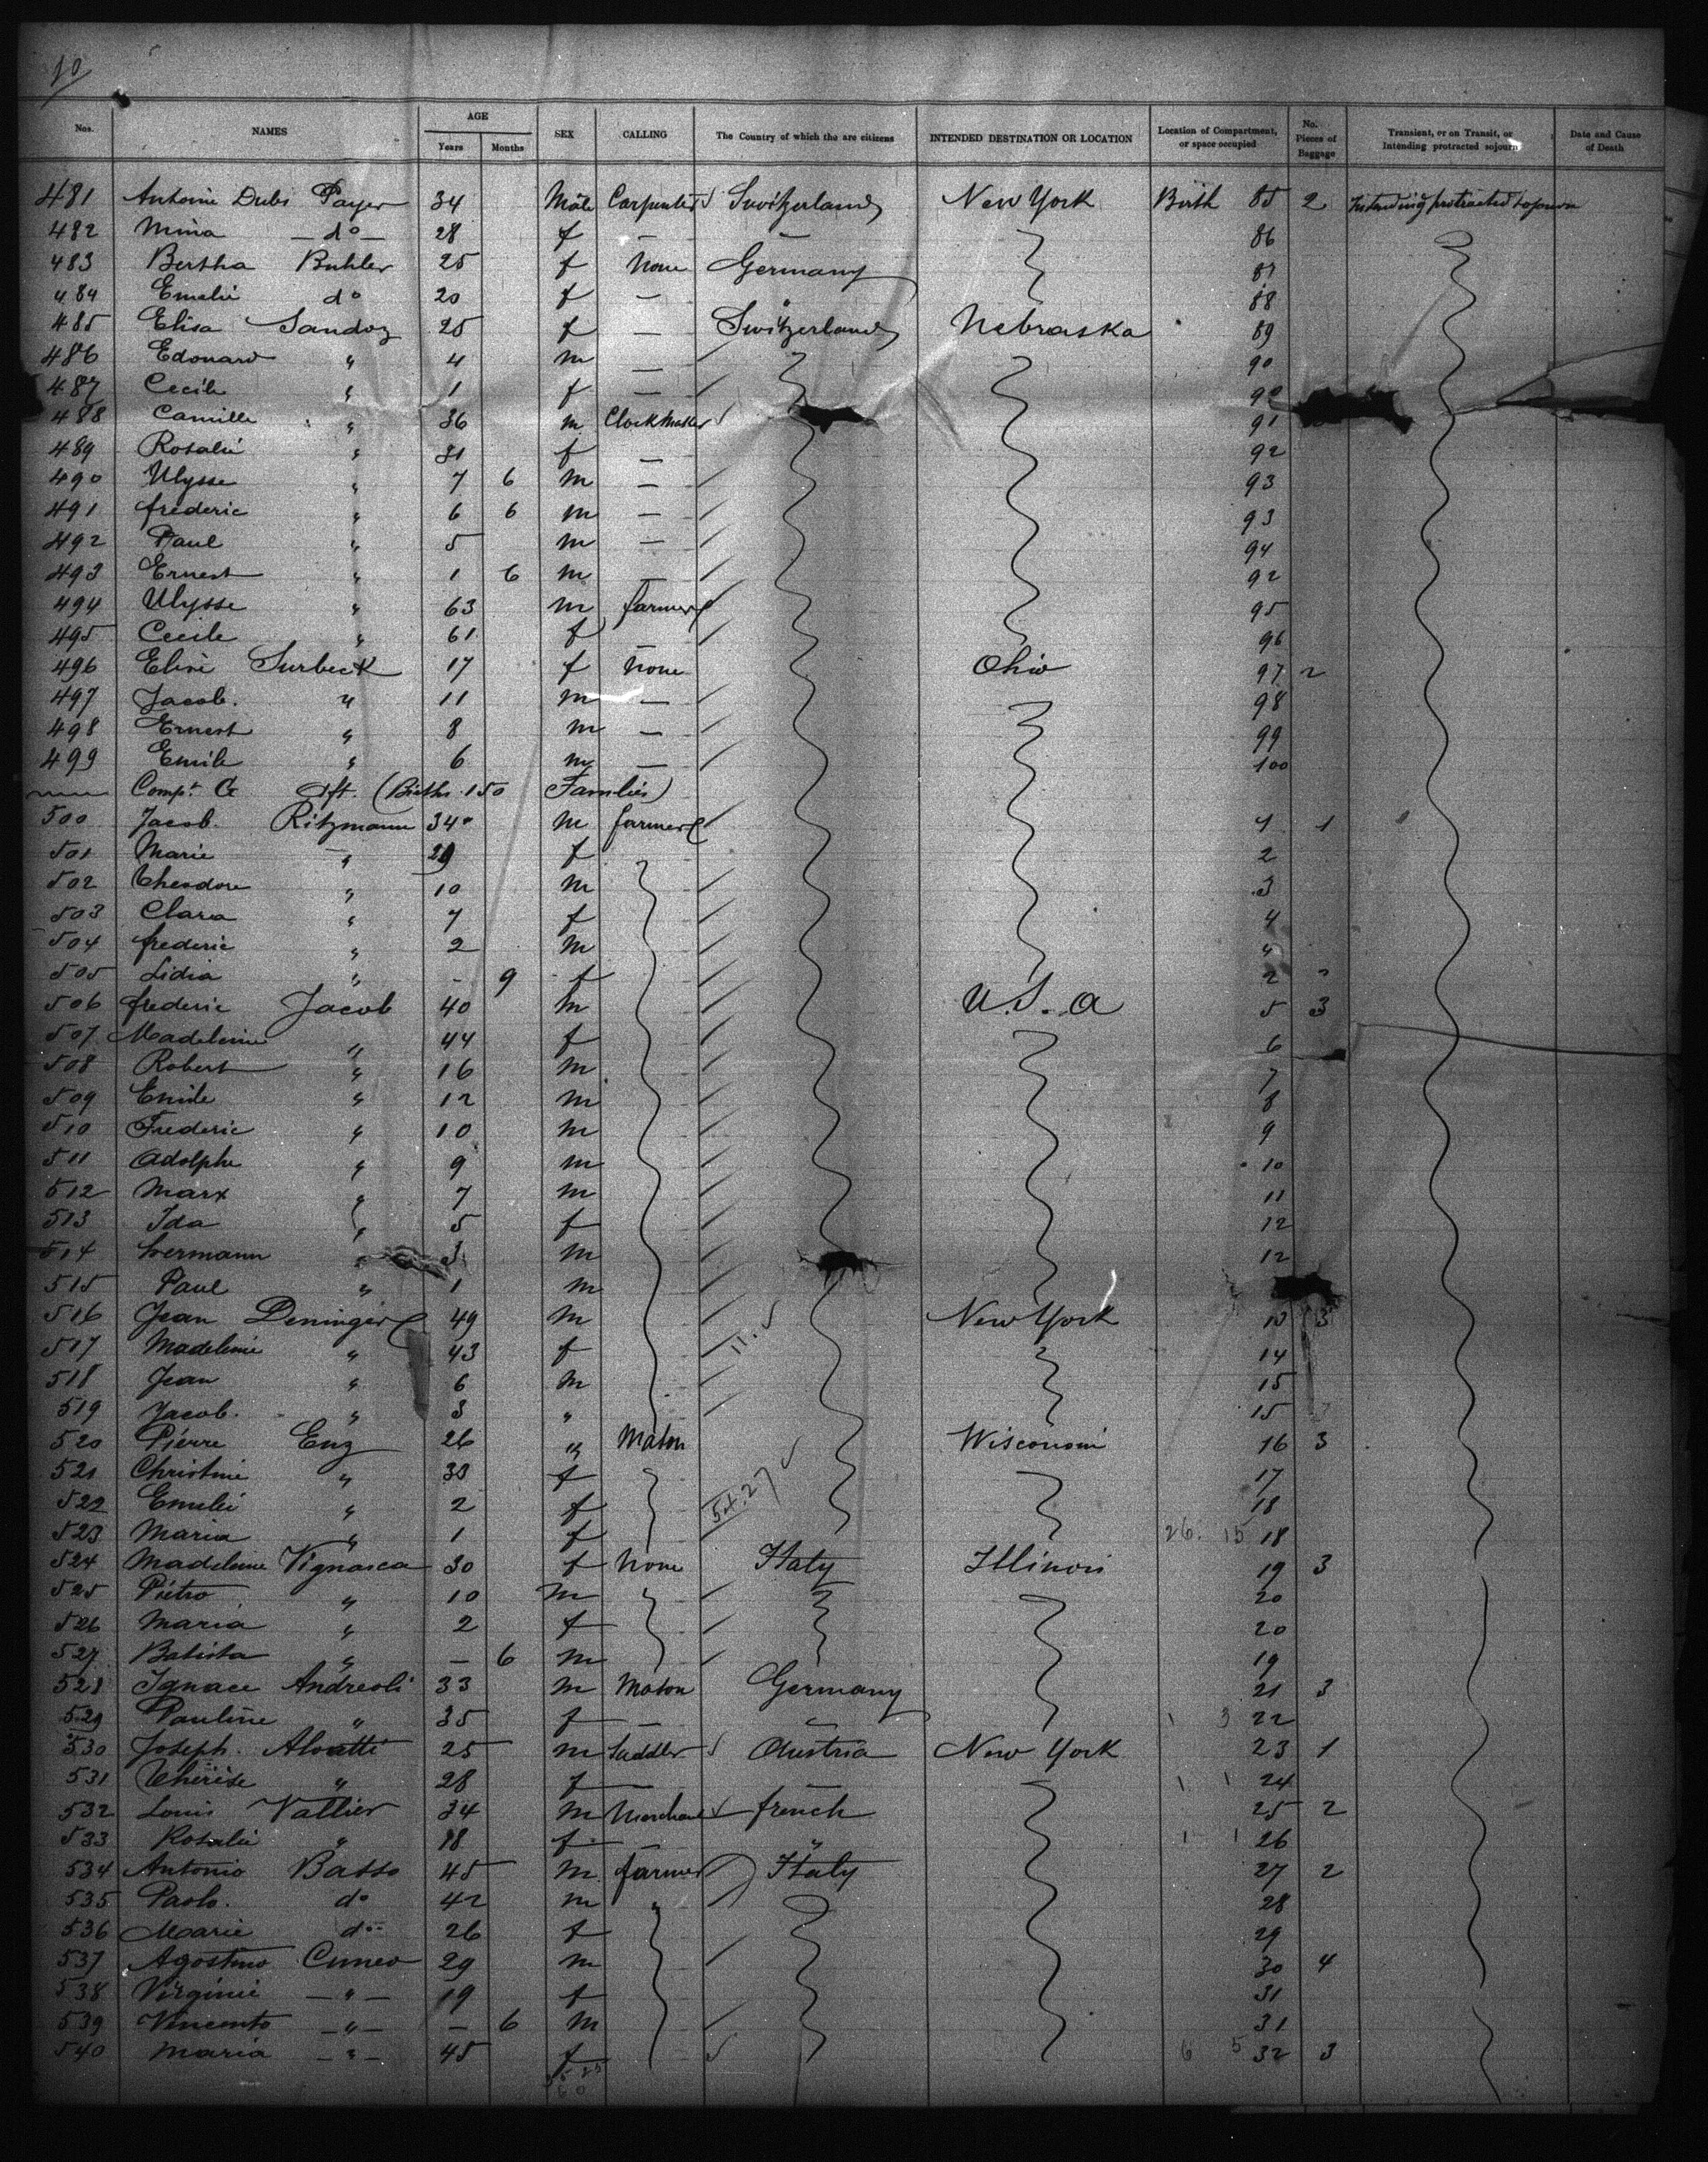 10
Nos. NAMES AGE Years Months SEX CALLING The Country of which the are citizens INTENDED DESTINATION OR LOCATION Location of Compartment, or space occupied No. Pieces of Baggage Transient, or on Transit, or Intending protracted sojourn Date and Cause of Death
481 Antoine Dubi Payer 34 Male Carpenter Switzerland New York Birth 85 2 Intending protracted sojourn
482 Mina — do — 28 f — — 86
483 Bertha Buhler 25 f None Germany 87
484 Emelie do 20 f — 88
485 Elisa Sandoz 25 f — Switzerland Nebraska 89
486 Edouard " 4 m — 90
487 Cecile " 1 f — 90
488 Camille " 36 m Clockmaker 91
489 Rosalie " 31 f — 92
490 Ulysse " 7 6 m — 93
491 frederic " 6 6 m — 93
492 Paul " 5 m — 94
493 Ernest " 1 6 m — 92
494 Ulysse " 63 m farmer 95
495 Cecile " 61 f — 96
496 Elise Surbeck 17 f None Ohio 97 2
497 Jacob. " 11 m — 98
498 Ernest " 8 m — 99
499 Emile " 6 m — 100
Compt. G Aft. (Births 150 Families)
500 Jacob Ritzmann 34 m farmer 1 1
501 Marie " 29 f 2
502 Theodore " 10 m 3
503 Clara " 7 f 4
504 frederic " 2 m "
505 Lidia " - 9 f 2
506 frederic Jacob 40 m U.S.a 5 3
507 Madeleine " 44 f 6
508 Robert " 16 m 7
509 Emile " 12 m 8
510 Frederic " 10 m 9
511 Adolphe " 9 m 10
512 Marx " 7 m 11
513 Ida " 5 f 12
514 Hermann " 3 m 12
515 Paul " 1 m
516 Jean Deninger 49 m New York 13 3
517 Madeleine " 43 f 14
518 Jean " 6 m 15
519 Jacob. " 3 " 15
520 Pierre Enz 26 " Mason Wisconsin 16 3
521 Christine " 33 f 17
522 Emelie " 2 f 18
523 Maria " 1 f 26. 15 18
524 Madeleine Vignasca 30 f None Italy Illinois 19 3
525 Pietro " 10 m 20
526 Maria " 2 f 20
527 Batista " — 6 m 19
528 Ignace Andreoli 33 m Mason Germany 21 3
529 Pauline " 35 f — 1 3 22
530 Joseph. Aloatti 25 m Saddler Austria New York 23 1
531 Thérèse " 28 f — — 1 1 24
532 Louis Vallier 34 m Merchant french 25 2
533 Rosalie " 18 f — " 1 1 26
534 Antonio Basso 45 m farmer Italy 27 2
535 Paolo. do 42 m " 28
536 Marie do 26 f 29
537 Agostino Cuneo 29 m 30 4
538 Virginie — " — 19 f 31
539 Vincento — " — — 6 m 31
540 Maria — " — 45 f 6 5 32 3